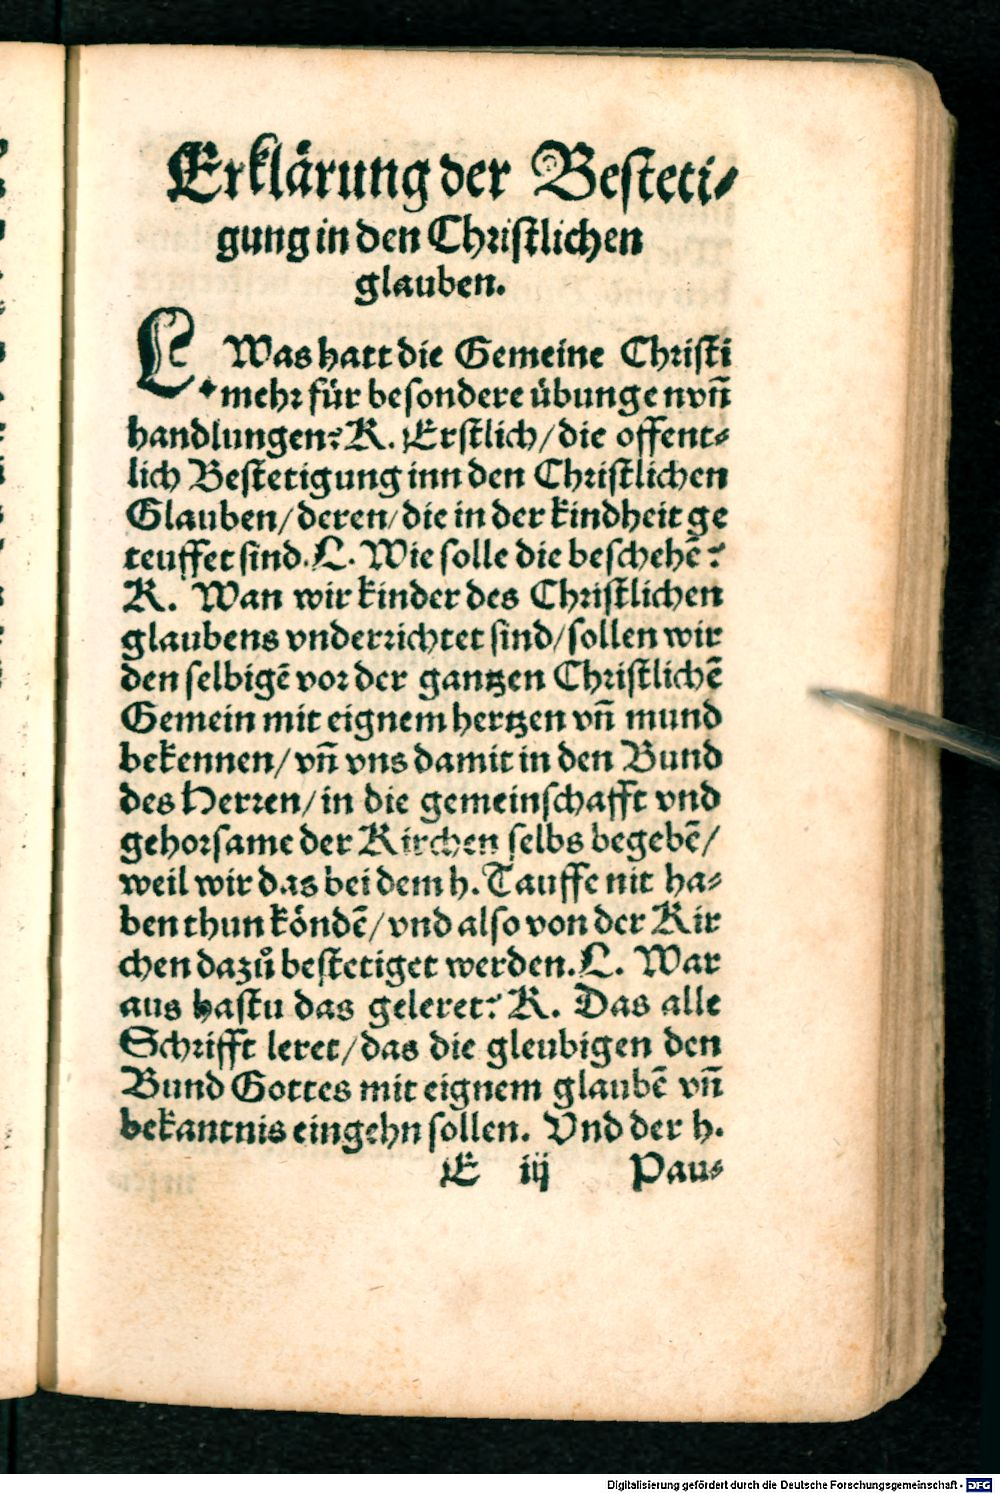 Erklärung der Besteti⸗
gung in den Christlichen
glauben.
L. Was hatt die Gemeine Christi
mehr für besondere übunge nvñ
handlungen? K. Erstlich/ die offent⸗
lich Bestetigung inn den Christlichen
Glauben/ deren/ die in der kindheit ge
teuffet sind. L. Wie solle die beschehē?
K. Wan wir kinder des Christlichen
glaubens vnderrichtet sind/ sollen wir
den selbigē vor der gantzen Christlichē
Gemein mit eignem hertzen vñ mund
bekennen/ vñ vns damit in den Bund
des Herren/ in die gemeinschafft vnd
gehorsame der Kirchen selbs begebē/
weil wir das bei dem h. Tauffe nit ha⸗
ben thun köndē/ vnd also von der Kir
chen dazů bestetiget werden. L. War
aus hastu das geleret? K. Das alle
Schrifft leret/ das die gleubigen den
Bund Gottes mit eignem glaubē vñ
bekantnis eingehn sollen. Vnd der h.
E iij Pau⸗
Digitalisierung gefördert durch die Deutsche Forschungsgemeinschaft - DFG